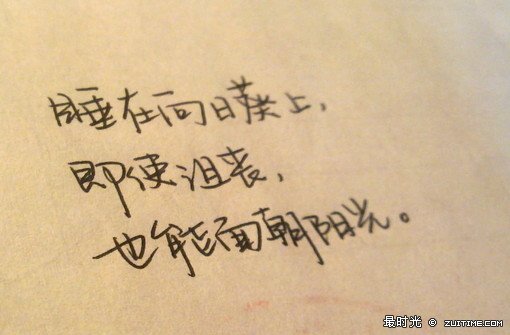 睡在向日葵上，
即使沮丧，
也能面朝阳光。
最时光 © ZUITIME.COM